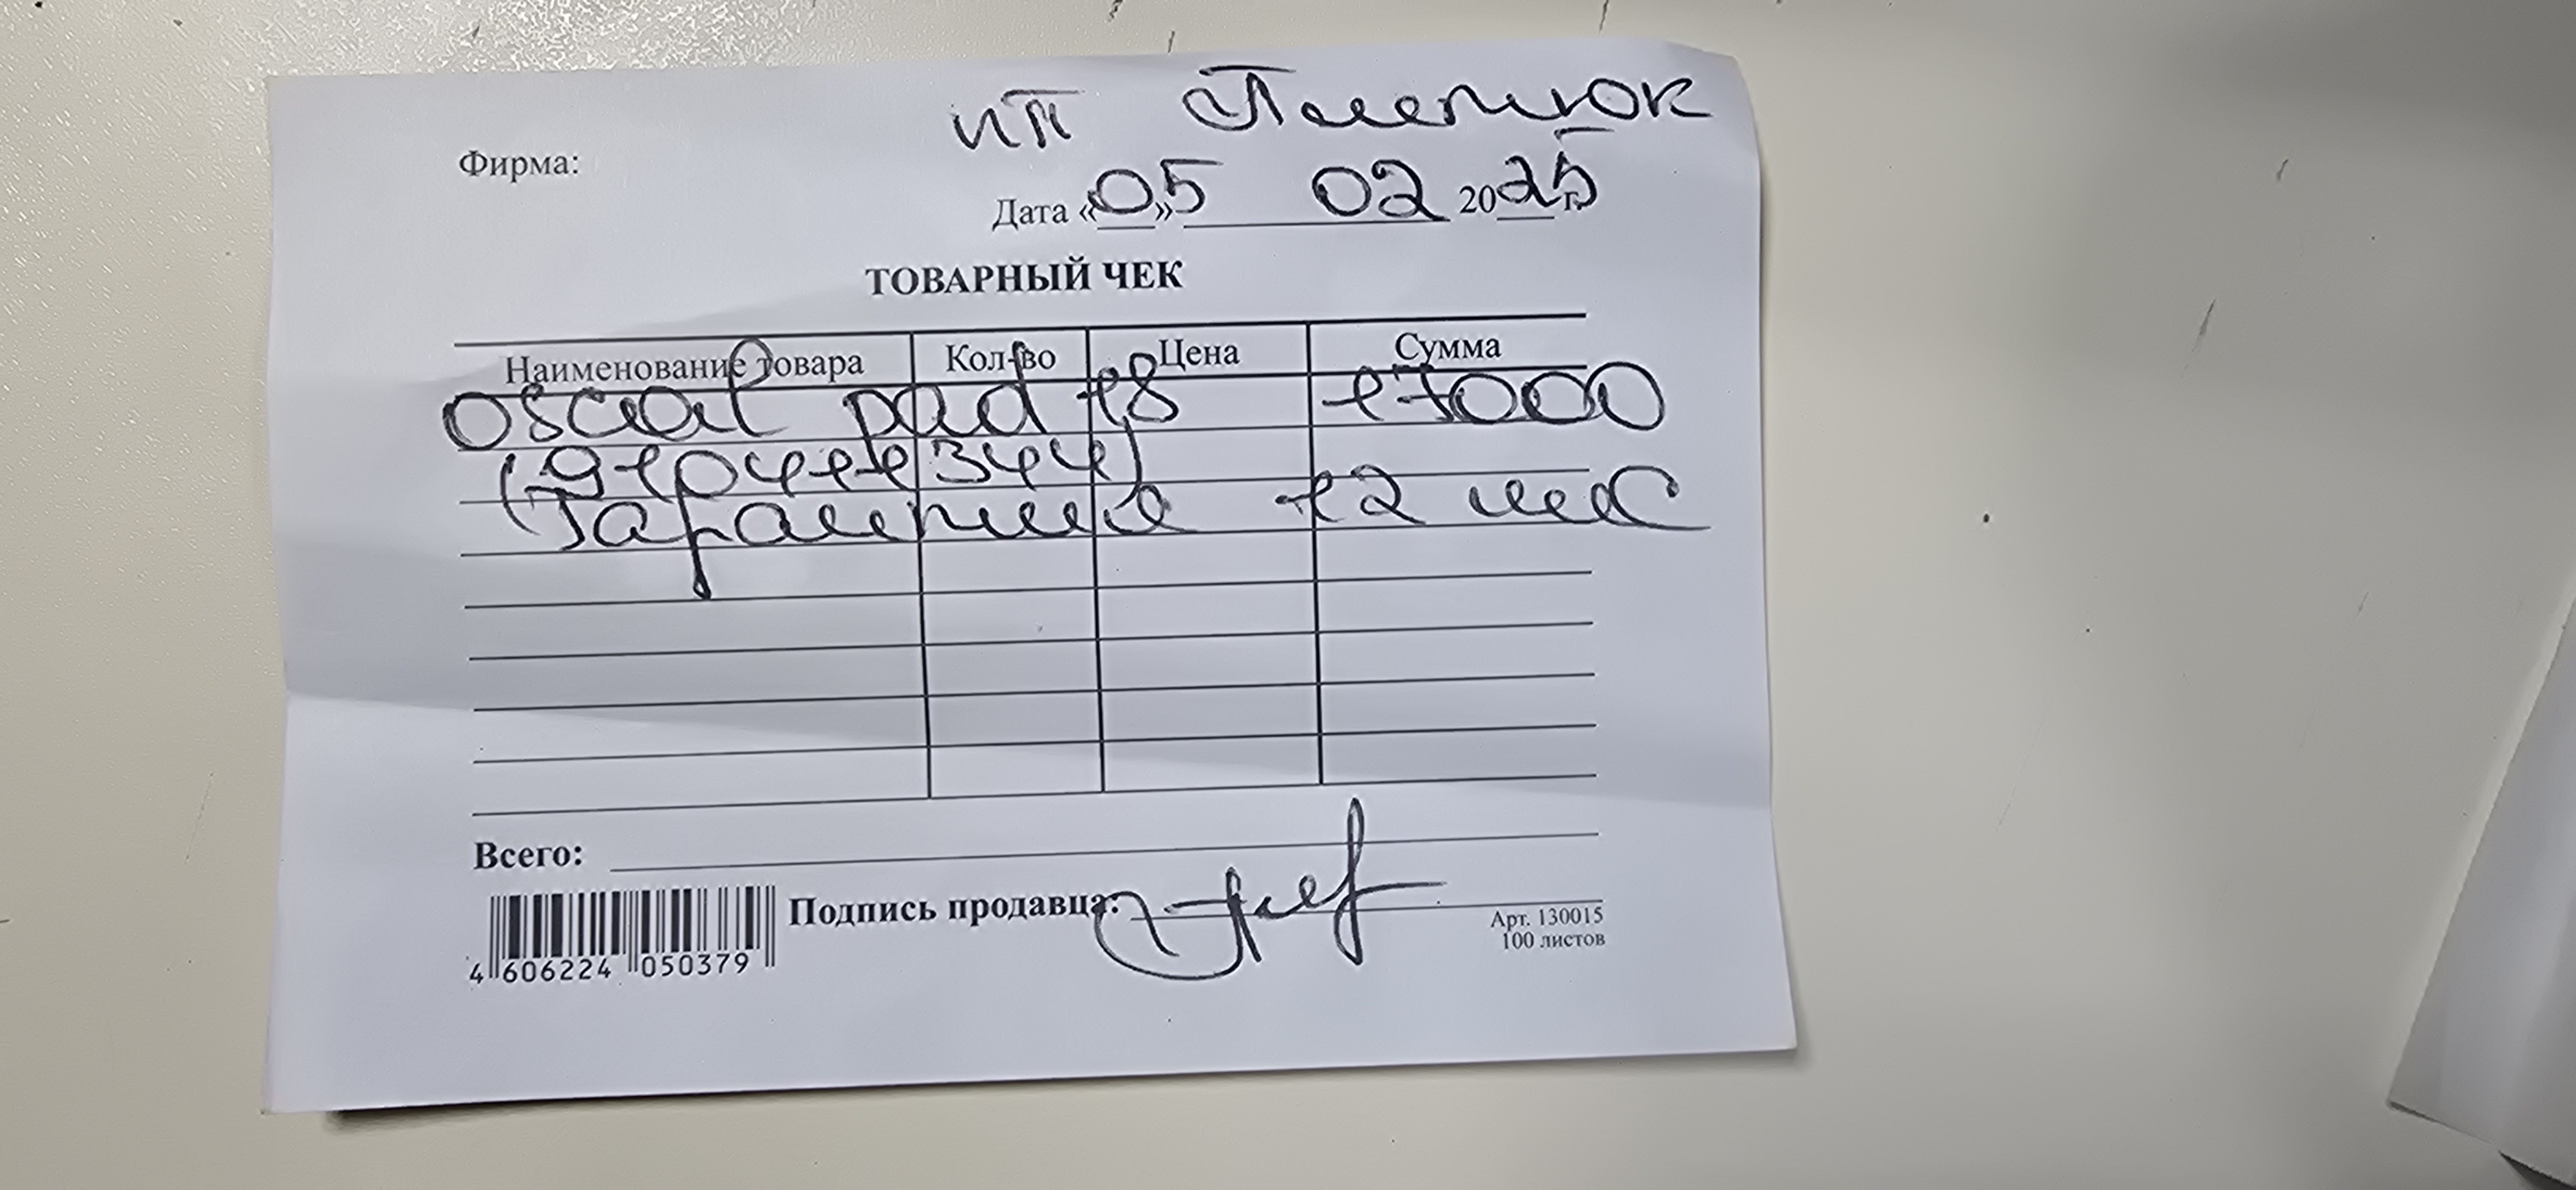 ИП
Фирма:
Дата «05» 02 2025 г.
ТОВАРНЫЙ ЧЕК
Наименование товара Кол-во Цена Сумма
oscal pad 18 17000
Гарантия 12 мес
Всего:
Подпись продавца:
4 606224 050379
Арт. 130015
100 листов